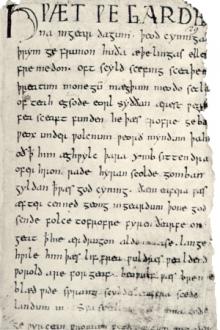 HǷÆT ǷE GARDE
na ingear dagum. þeod cyninga
þrym ge frunon huða æþelingas elle
fre medon. oft scyld scefing sceaþe
þreatum monegū mægþum meodo setla
of teah egsode eorl syððan ærest ƿea
fea sceaft funden he þæs frofre geba
ƿeox under ƿolcnum ƿeorð myndum þah
oð þ him æghƿylc þara ymb sittendra
ofer hron rade hyran scolde gomban
gyldan þæs ƿæs god cyning. ðæm eafera ƿæs
æfter cenned geong ingeardum þone god
sende folce tofrofre fyren ðearfe on
geat þhie ær drugon aldor
hƿile him þæs lif frea ƿuldres ƿealdend
ƿorold are for geaf. beoƿulf ƿæs breme
blæd ƿide sprang scyldes eafera scede
landum in.